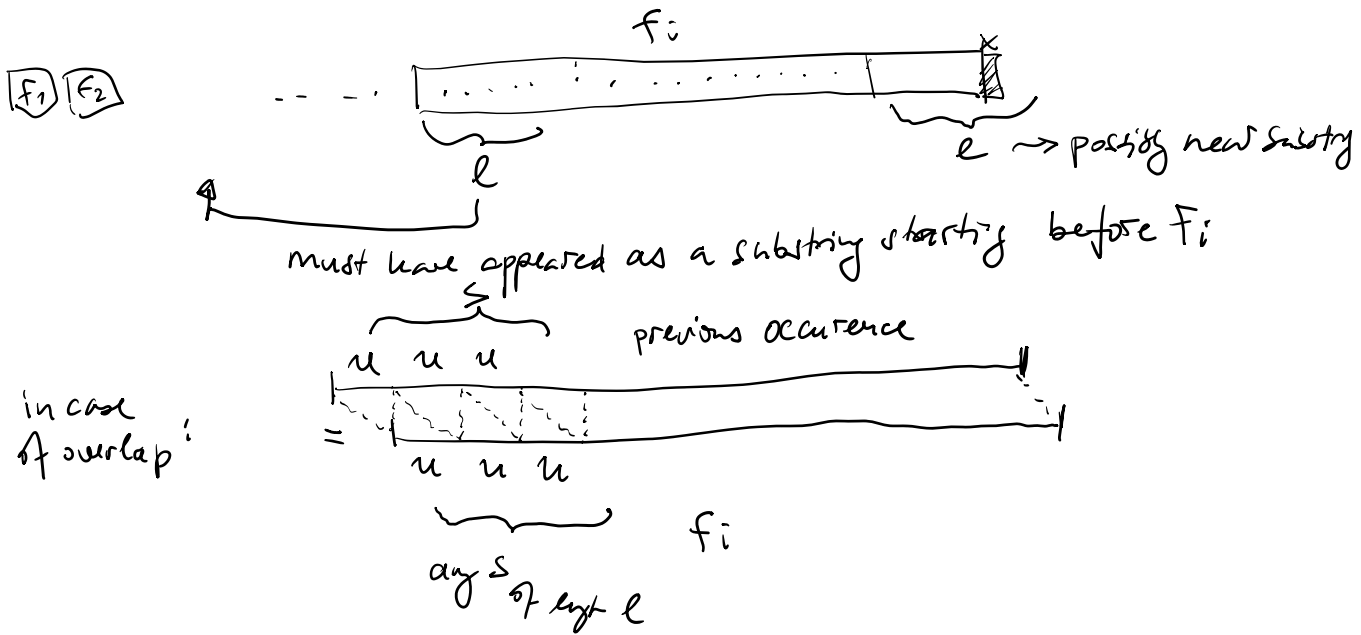 fi
x
f1 f2
l l ~> possibly new substry
must have appeared as a substring starting before Fi
S
previous occurence
u u u
in case
of overlap :
=
u u u
fi
any S
of lengt l